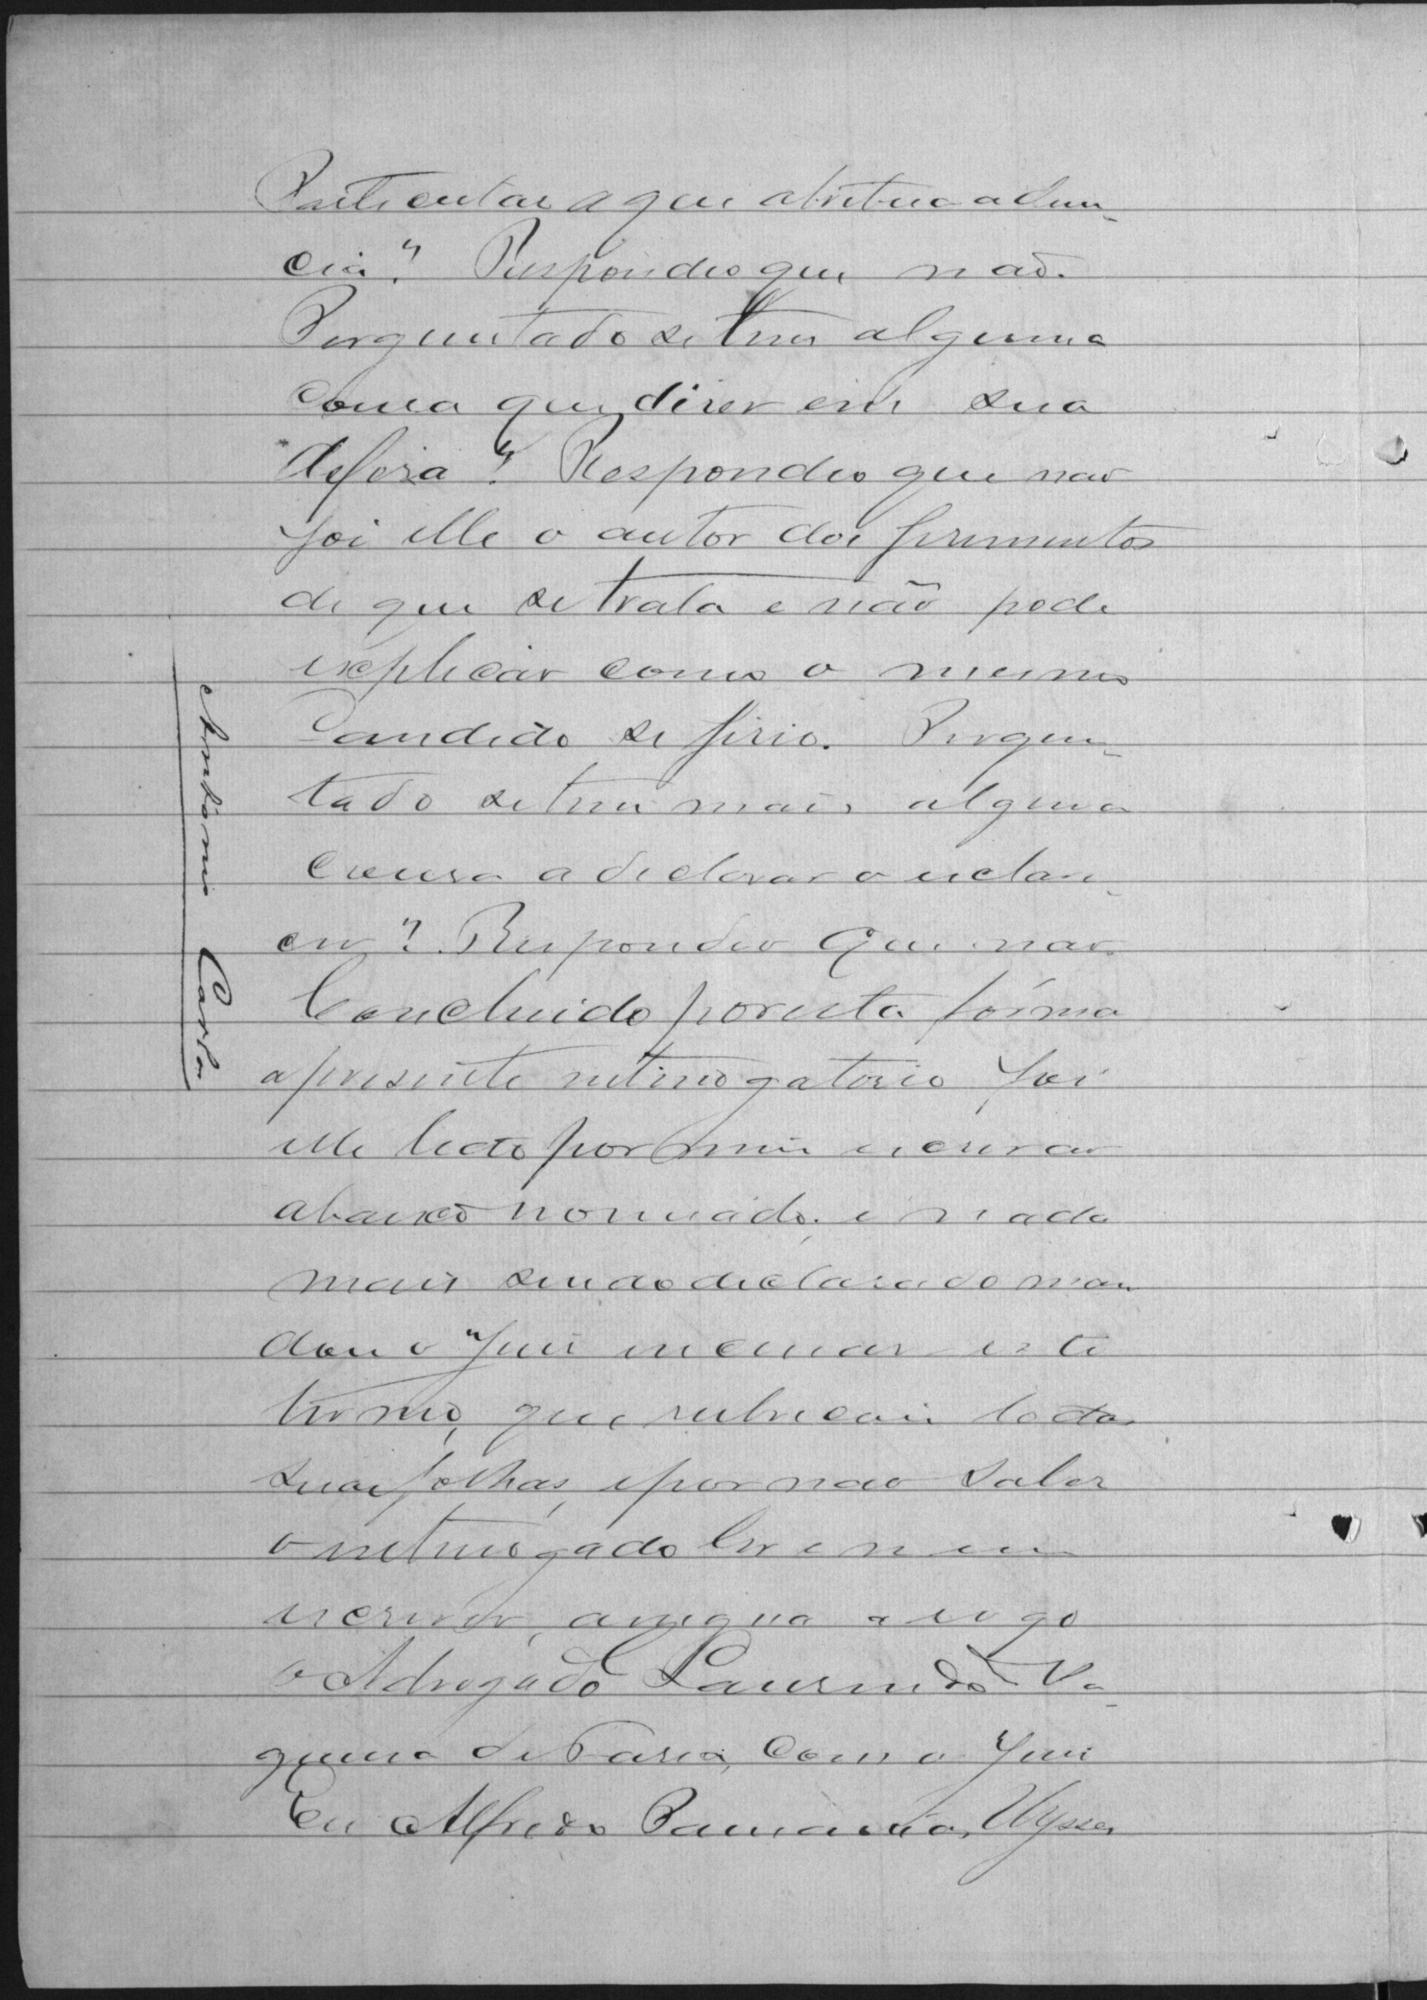 Particular a que atribua a denun-
cia? Respondeo que não.
Perguntado se tem alguma
cousa que diser em sua
defesa? Respondeo que nao
foi elle o autor dos ferimentos
de que se trata e não pode
explicar como o mesmo
Candido se ferio. Pergun-
tado se tem mais alguma
cousa a declarar o esclare-
cer? Respondeo que nao.
Concluido por esta fórma
o presente interrogatorio foi
elle lido por mim escrivao
abaixo nomeado, e nada
mais sendo declarado man
dou o Juis encerrar este
termo, que rubricou todas
suas folhas, e por nao saber
o interrogado ler e nem
escrever, assigna a rogo
o Advogado Laurindo Va-
queno de Faria, com o Juis
Eu Alfredo Ulysses
Antonio Carlos